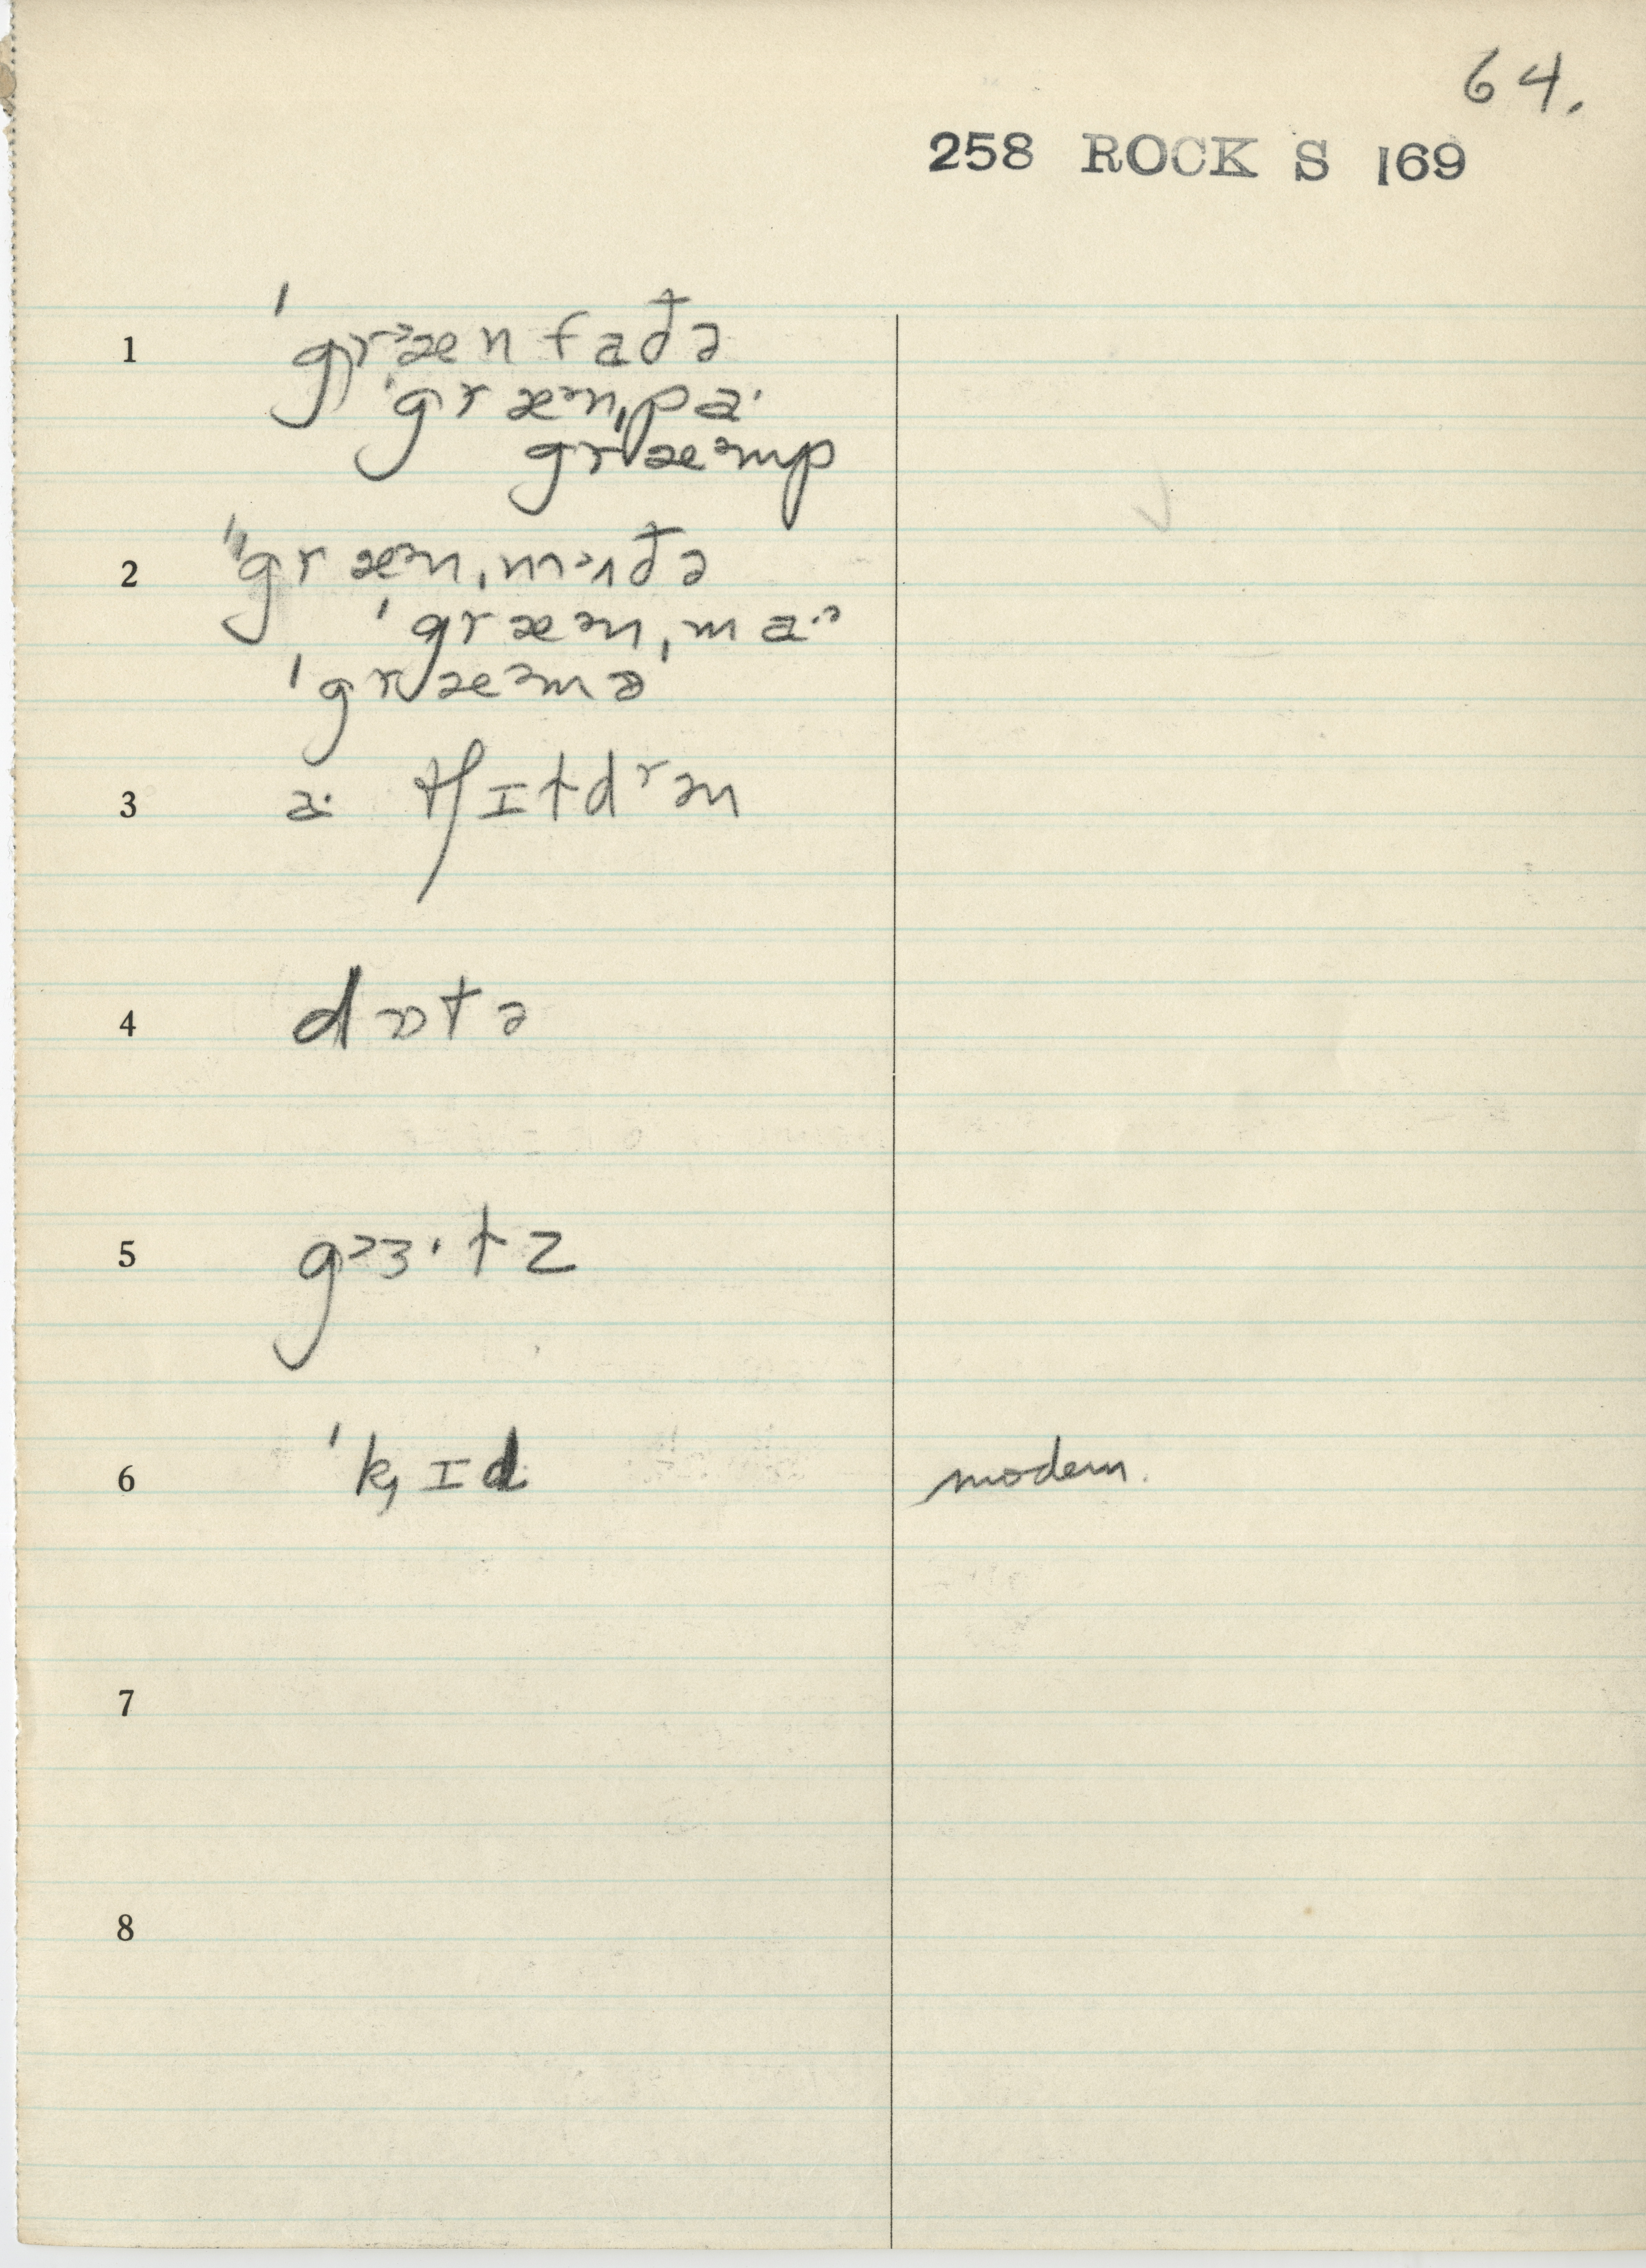 64.
258 ROCK S 169
1 ˈgrᵊænfaðə
ˈgræᵊnˌpaˑ
ˈgræᵊmp
2 ˈgræᵊnˌmᵊʌðə
ˈgræᵊnˌmaˑᵊ
ˈgræᵊmə
3 aˑ tʃɪtdʳən
4
5 gᵊɜˑtz
6 ˈk̡ɪd modern.
7
8